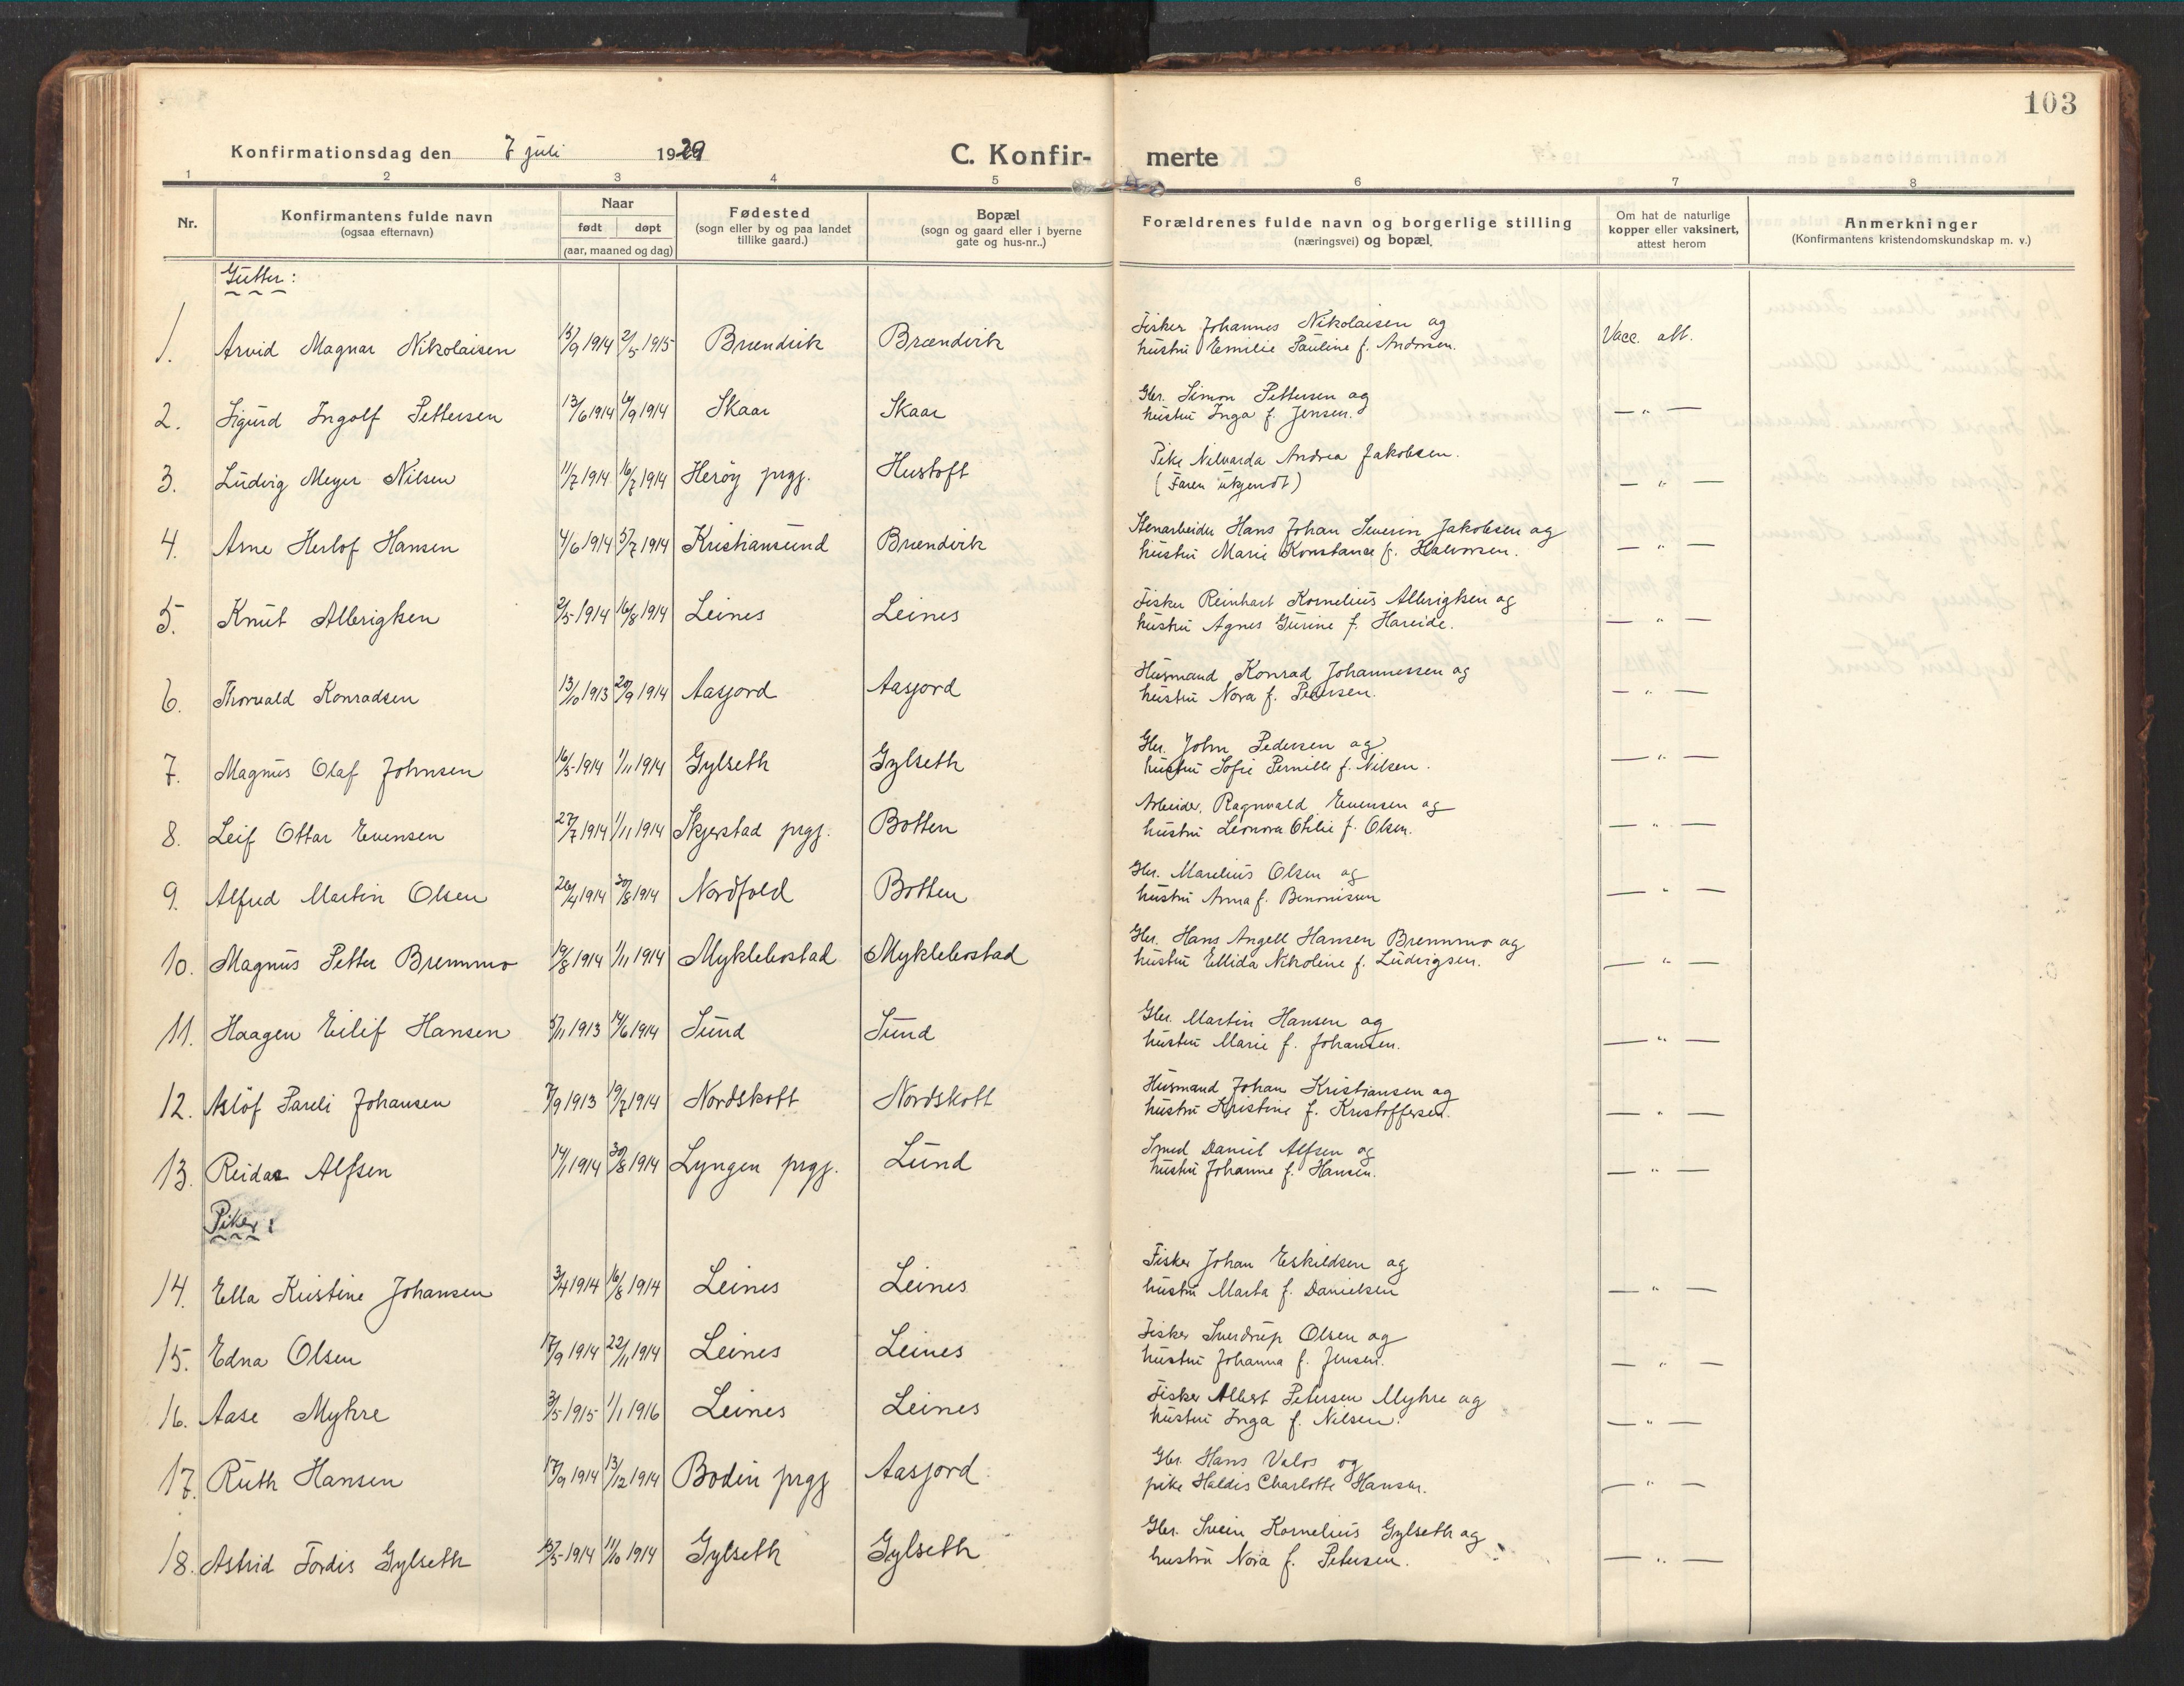 103
Konfirmationsdag den 7 juli 1929
C. Konfir- merte
1 2 3 4 5 6 7 8
Nr.
Konfirmantens fulde navn
(ogsaa efternavn)
Naar
født døpt
(aar, maaned og dag)
Fødested
(sogn eller by og paa landet
tillike gaard.)
Bopæl
(sogn og gaard eller i byerne
gate og hus-nr..)
Forældrenes fulde navn og borgerlige stilling
(næringsvei) og bopæl.
Om hat de naturlige
kopper eller vaksinert,
attest herom
Anmerkninger
(Konfirmantens kristendomskundskap m. v.)
Gutter:
Fisker Johannes Nikolaisen og
1. Arvid Magnar Nikolaisen 15/9 1914 2/5 1915 Brændvik Brændvik hustru Emilie Pauline f. Andorsen. Vacc. att.
Gbr. Simon Pettersen og
2. Sigurd Ingolf Pettersen 13/6 1914 6/9 1914 Skaar Skaar hustru Inga f. Jensen. — " —
Pike Nilvarda Andrea Jakobsen.
3. Ludvig Meyer Nilsen 11/2 1914 16/7 1914 Herøy prgj. Hustoft (Faren ukjendt) — " —
Stenarbeider Hans Johan Severin Jakobsen og
4. Arne Herlof Hansen 4/6 1914 5/7 1914 Kristiansund Brændvik hustru Marie Konstance f. Halvorsen. — " —
Fisker Reinhart Kornelius Albrigtsen og
5. Knut Albrigtsen 2/5 1914 16/8 1914 Leines Leines hustru Agnes Gurine f. Hareide. — " —
Husmand Konrad Johannessen og
6. Thorvald Konradsen 13/10 1913 20/9 1914 Aasjord Aasjord hustru Nora f. Pedersen. — " —
Gbr. John Pedersen og
7. Magnus Olaf Johnsen 16/5 1914 1/11 1914 Gylseth Gylseth hustru Sofie Pernille f. Nilsen. — " —
Arbeider Ragnvald Evensen og
8. Leif Ottar Evensen 27/7 1914 1/11 1914 Skjerstad prgj. Botten hustru Leonora Otilie f. Olsen. — " —
Gbr. Marelius Olsen og
9. Alfred Martin Olsen 26/4 1914 30/8 1914 Nordfold Botten hustru Anna f. Benonisen — " —
Gbr. Hans Angell Hansen Bremmo og
10. Magnus Petter Bremmo 19/8 1914 1/11 1914 Myklebostad Myklebostad hustru Ellida Nikoline f. Ludvigsen. — " —
Gbr. Martin Hansen og
11. Haagen Eilif Hansen 5/11 1913 14/6 1914 Sund Sund hustru Marie f. Johansen. — " —
Husmand Johan Kristiansen og
12. Asløf Pareli Johansen 7/9 1913 19/7 1914 Nordskott Nordskott hustru Kristine f. Kristoffersen. — " —
Smed Daniel Alfsen og
13. Reidar Alfsen 14/1 1914 30/8 1914 Lyngen prgj. Lund hustru Johanne f. Hansen. — " —
Piker:
Fisker Johan Eskildsen og
14. Ella Kristine Johansen 3/4 1914 16/8 1914 Leines Leines hustru Marta f. Danielsen — " —
Fisker Sverdrup Olsen og
15. Edna Olsen 17/9 1914 22/11 1914 Leines Leines hustru Johanna f. Jensen. — " —
Fisker Albert Petersen Myhre og
16. Aase Myhre 3/5 1915 1/1 1916 Leines Leines hustru Inga f. Nilsen. — " —
Gbr. Hans Valos og
17. Ruth Hansen 17/9 1914 13/12 1914 Bodin prgj Aasjord pike Haldis Charlotte Hansen. — " —
Gbr. Svein Kornelius Gylseth og
18. Astrid Tordis Gylseth 1914 11/10 1914 Gylseth Gylseth hustru Nora f. Petersen. — " —